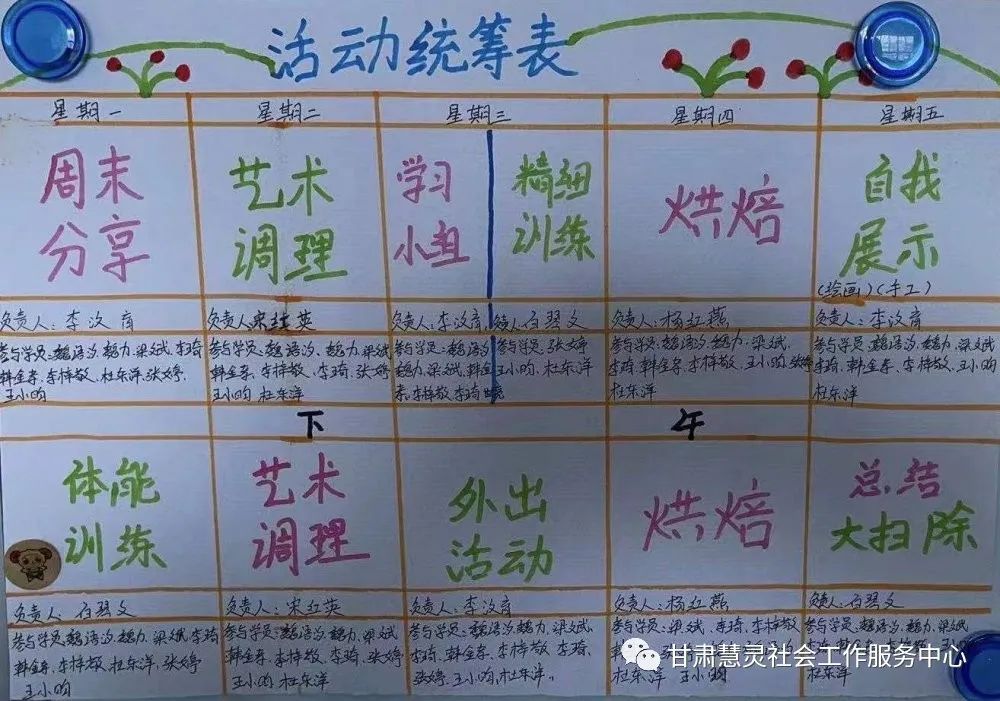 活动统筹表
星期一 星期二 星期三 星期四 星期五
周末 艺术 学习 精细 烘焙 自我
分享 调理 小组 训练 展示
(绘画)(手工)
负责人:李汶育 负责人:宋红英 负责人:李汶育 负责人:白碧文 负责人:杨红燕 负责人:李汶育
参与学员:魏语汐、魏力、梁斌、李琦
韩金孝、李梓敬、杜东洋、张婷
王小昀
参与学员:魏语汐、魏力、梁斌
韩金孝、李梓敬、李琦、张婷
王小昀 杜东洋
参与学员:魏语汐
魏力、梁斌、韩金
孝、李梓敬、李琦
参与学员:张婷
王小昀、杜东洋
参与学员:魏语汐、魏力、梁斌、
李琦、韩金孝、李梓敬、王小昀、张婷
杜东洋
参与学员:魏语汐、魏力、梁斌
李琦、韩金孝、李梓敬、王小昀
杜东洋
下 午
体能 艺术 外出 烘焙 总结
训练 调理 活动 大扫除
负责人:白碧文 负责人:宋红英 负责人:李汶育 负责人:杨红燕 负责人:白碧文
参与学员:魏语汐、魏力、梁斌、李琦
韩金孝、李梓敬、杜东洋、张婷
王小昀
参与学员:魏语汐、魏力、梁斌
韩金孝、李梓敬、李琦、张婷
王小昀、杜东洋
参与学员:魏语汐、魏力、梁斌、
李琦、韩金孝、李梓敬、李琦、
张婷、王小昀、杜东洋。
参与学员:梁斌、李琦、李梓敬
杜东洋 王小昀
参与学员:魏语汐、魏力、梁斌
杜东洋
甘肃慧灵社会工作服务中心